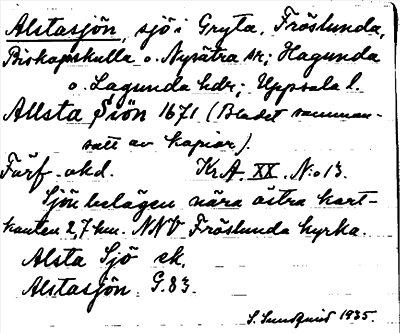 Alstasjön, sjö i Gryta, Fröslunda,
Biskopskulla o. Nysätra sr; Hagunda
o. Lagunda hdr; Uppsala l.
Allsta Siön 1671 (Bladet samman-
satt av kapior).
Förf. okd. KrA. XX. N:o 13.
Sjön belägen nära östra kart-
kanten 2,7 km. NNV Fröslunda kyrka.
Alsta Sjö ek.
Alstasjön G.83.
S. Sundquist 1935.